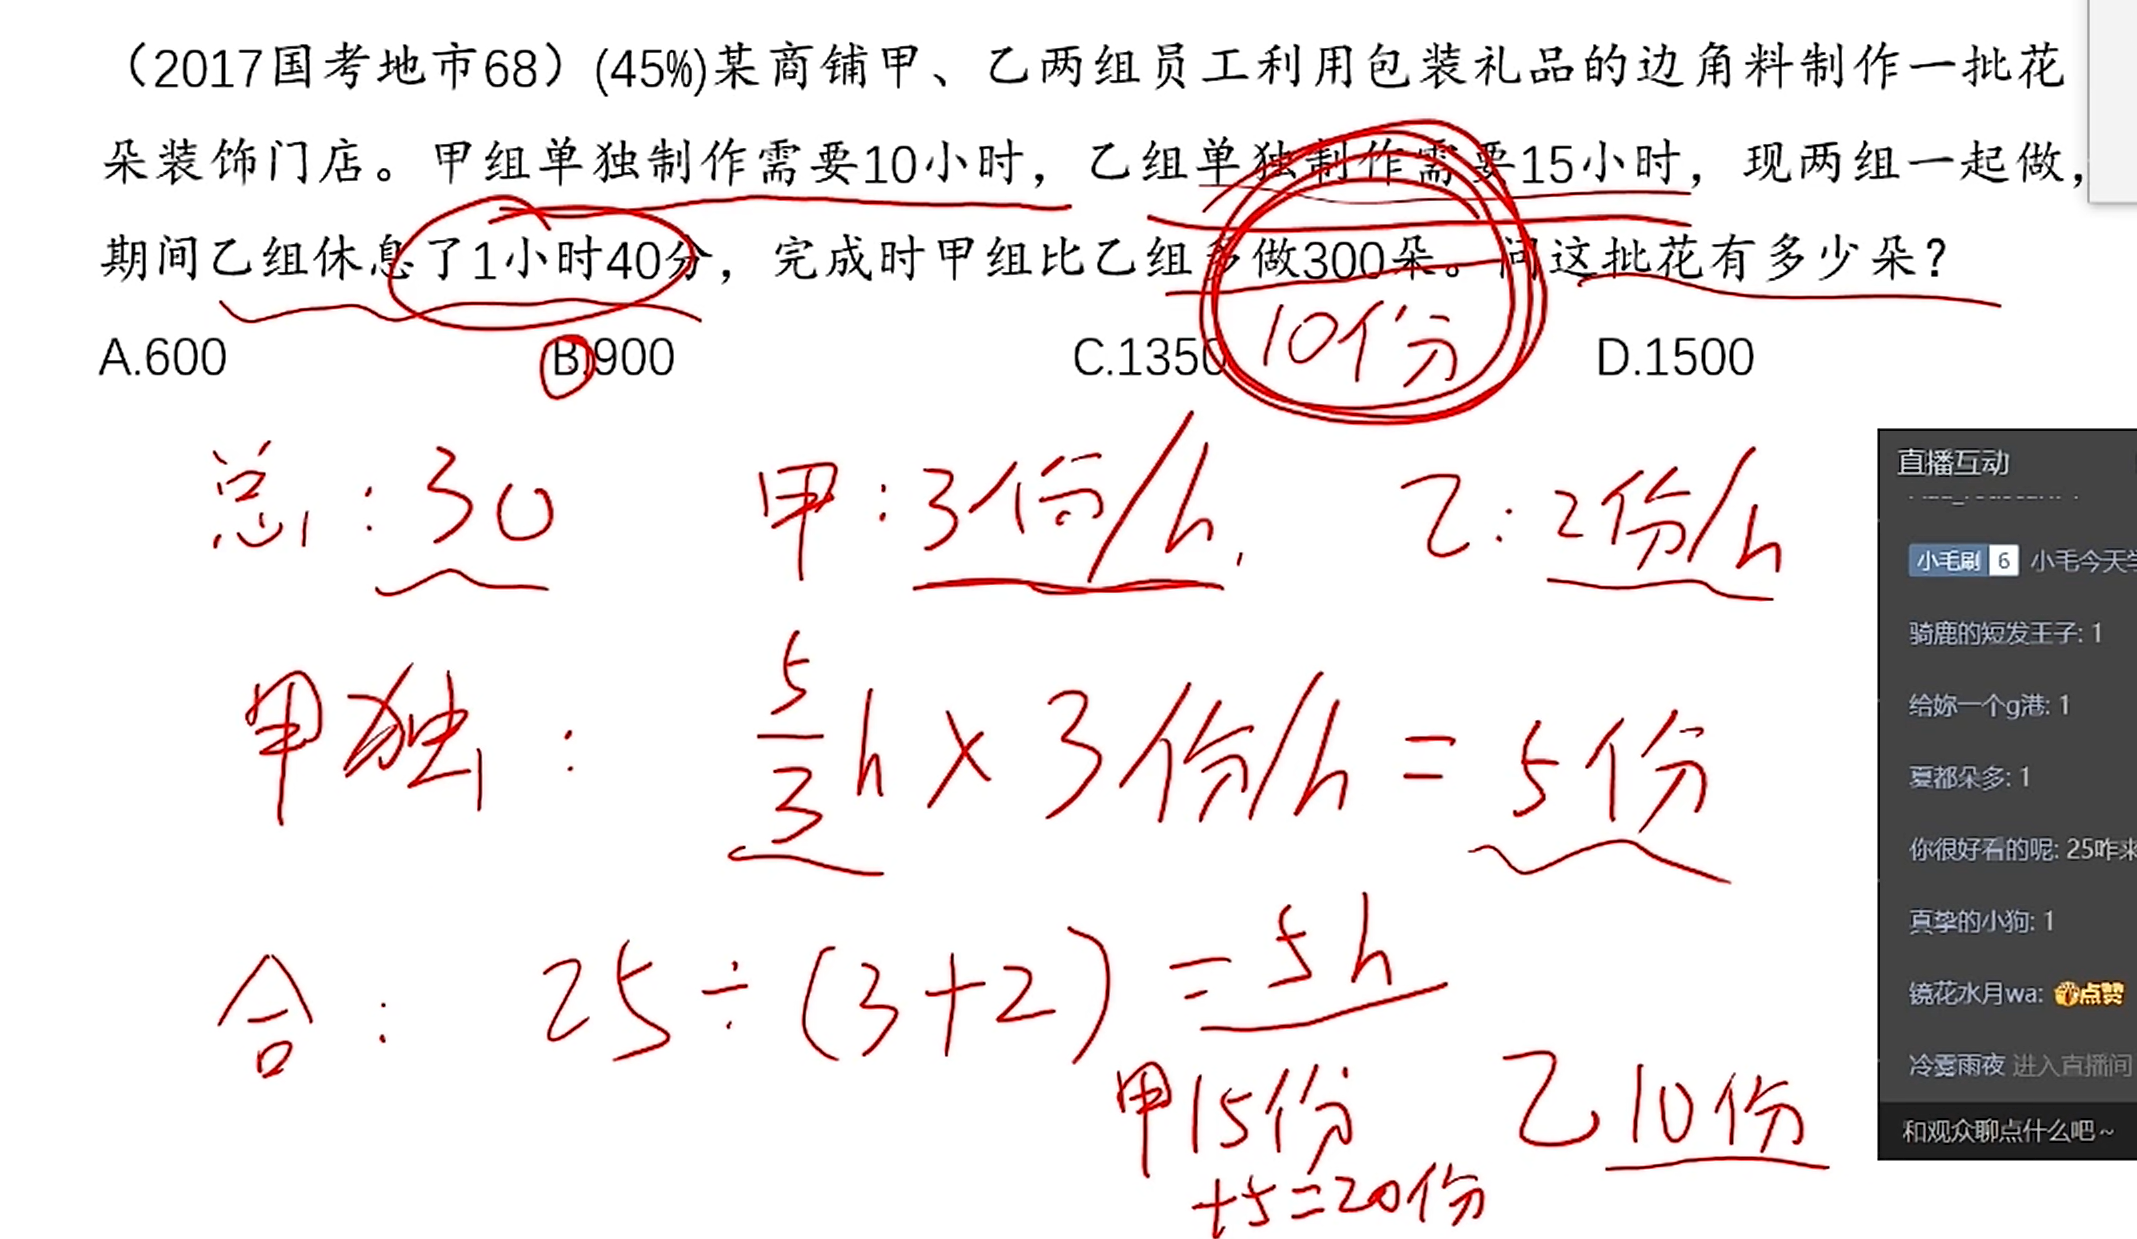 （2017国考地市68）(45%)某商铺甲、乙两组员工利用包装礼品的边角料制作一批花
朵装饰门店。甲组单独制作需要10小时，乙组单独制作需要15小时，现两组一起做，
期间乙组休息了1小时40分，完成时甲组比乙组多做300朵。问这批花有多少朵？
10份
A.600 B.900 C.1350 D.1500
总：30 甲：3份/h. 乙：2份/h
甲独： 5/3 h × 3份/h = 5份
合： 25÷(3+2) = 5h
甲15份 乙10份
+5=20份
直播互动
小毛刷 6 小毛今天学
骑鹿的短发王子: 1
给妳一个g港: 1
夏都朵多: 1
你很好看的呢: 25咋来
真挚的小狗: 1
镜花水月wa: 点赞
冷雾雨夜 进入直播间
和观众聊点什么吧~